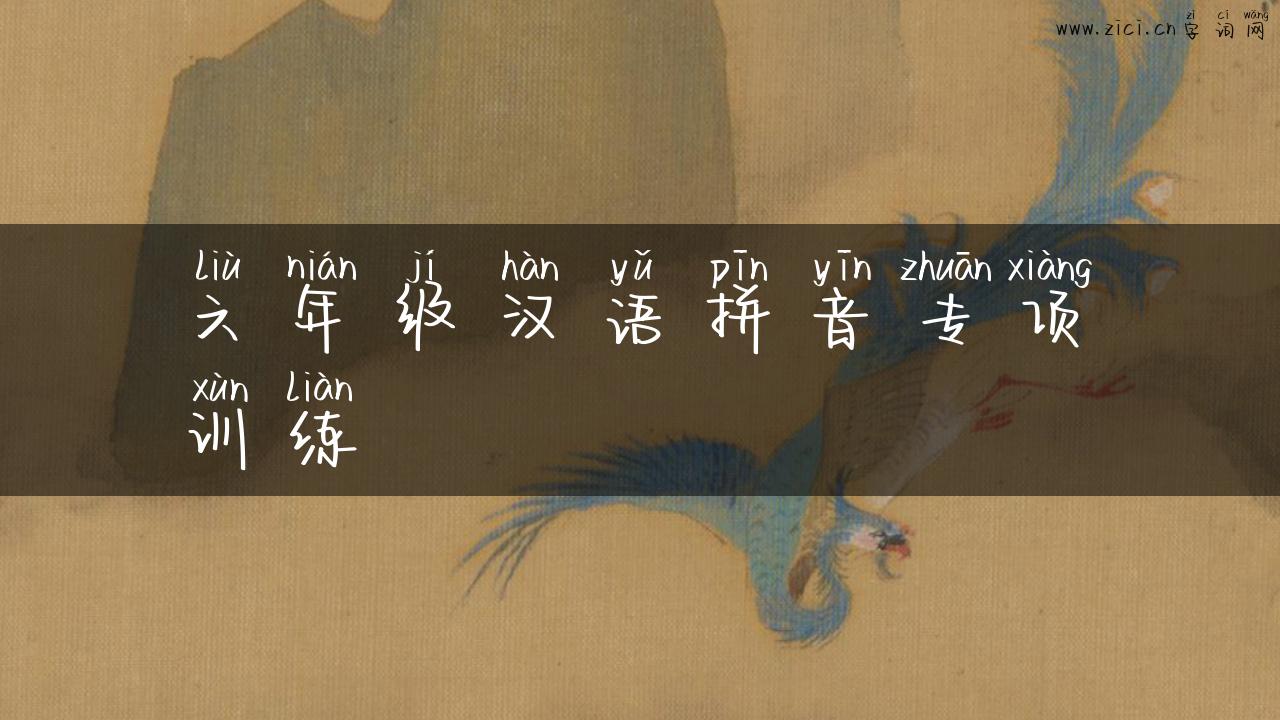 zì cí wǎng
www.zici.cn 字 词 网
liù nián jí hàn yǔ pīn yīn zhuān xiàng
六 年 级 汉 语 拼 音 专 项
xùn liàn
训 练